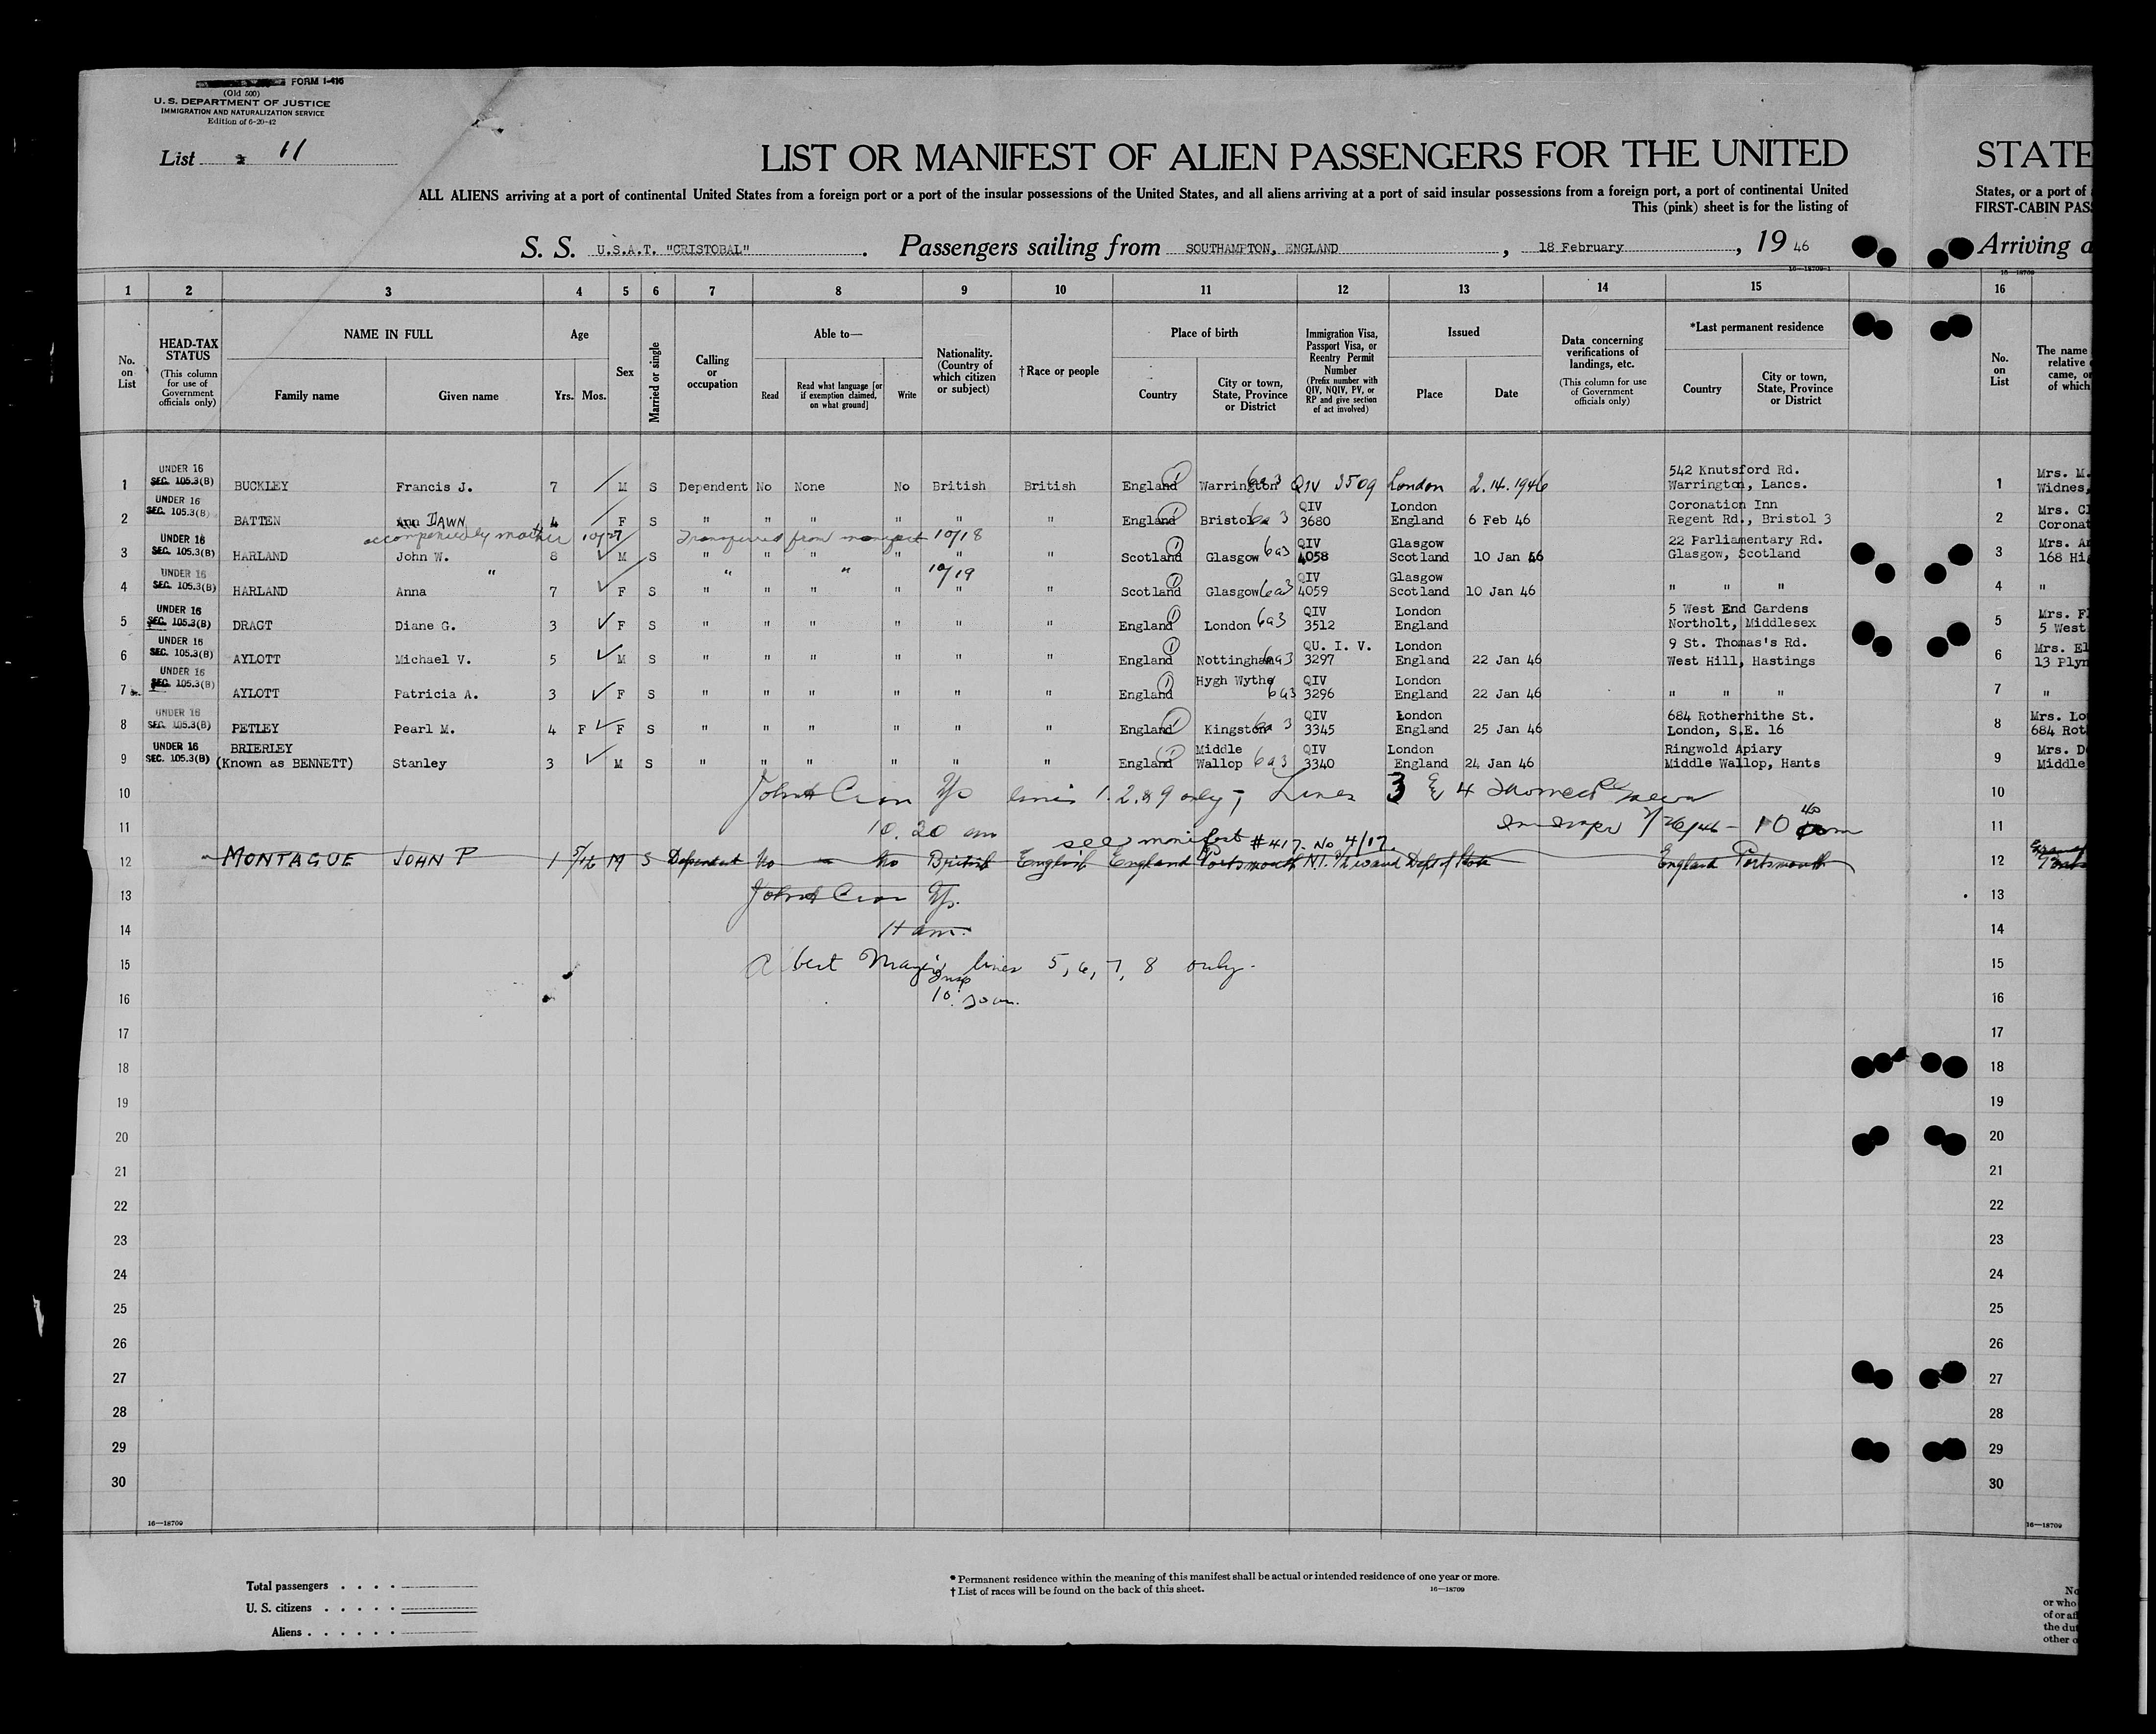 FORM I-416
(Old 500)
U. S. DEPARTMENT OF JUSTICE
IMMIGRATION AND NATURALIZATION SERVICE
Edition of 6-20-42
List 11
LIST OR MANIFEST OF ALIEN PASSENGERS FOR THE UNITED STATE
ALL ALIENS arriving at a port of continental United States from a foreign port or a port of the insular possessions of the United States, and all aliens arriving at a port of said insular possessions from a foreign port, a port of continental United States, or a port of
This (pink) sheet is for the listing of FIRST-CABIN PAS
S. S. U.S.A.T. "CRISTOBAL". Passengers sailing from SOUTHAMPTON, ENGLAND, 18 February, 19 46 Arriving a
16—18709-1 16—18709
1 2 3 4 5 6 7 8 9 10 11 12 13 14 15 16
No. on List
HEAD-TAX STATUS (This column for use of Government officials only)
NAME IN FULL Family name Given name
Age Yrs. Mos.
Sex
Married or single
Calling or occupation
Able to— Read Read what language [or if exemption claimed, on what ground] Write
Nationality. (Country of which citizen or subject)
†Race or people
Place of birth Country City or town, State, Province or District
Immigration Visa, Passport Visa, or Reentry Permit Number (Prefix number with QIV, NQIV, PV, or RP and give section of act involved)
Issued Place Date
Data concerning verifications of landings, etc. (This column for use of Government officials only)
*Last permanent residence Country City or town, State, Province or District
No. on List
The name relative came, of which
1 UNDER 16 SEC. 105.3(B) BUCKLEY Francis J. 7 M S Dependent No None No British British England 1 Warrington 6a3 QIV 3509 London 2.14.1946 542 Knutsford Rd. Warrington, Lancs. 1 Mrs. M. Widnes,
2 UNDER 16 SEC. 105.3(B) BATTEN Ann DAWN 4 F S " " " " " " England 1 Bristol 6a3 QIV 3680 London England 6 Feb 46 Coronation Inn Regent Rd., Bristol 3 2 Mrs. Cl Coronat
accompanied by mother 10/27 Transferred from manifest 10/18
3 UNDER 16 SEC. 105.3(B) HARLAND John W. 8 M S " " " " " " Scotland 1 Glasgow 6a3 QIV 4058 Glasgow Scotland 10 Jan 46 22 Parliamentary Rd. Glasgow, Scotland 3 Mrs. An 168 Hi
" " " 10/19
4 UNDER 16 SEC. 105.3(B) HARLAND Anna 7 F S " " " " " " Scotland 1 Glasgow 6a3 QIV 4059 Glasgow Scotland 10 Jan 46 " " " 4 "
5 UNDER 16 SEC. 105.3(B) DRAGT Diane G. 3 F S " " " " " " England 1 London 6a3 QIV 3512 London England 5 West End Gardens Northolt, Middlesex 5 Mrs. F 5 West
6 UNDER 16 SEC. 105.3(B) AYLOTT Michael V. 5 M S " " " " " " England 1 Nottingham 6a3 QU. I. V. 3297 London England 22 Jan 46 9 St. Thomas's Rd. West Hill, Hastings 6 Mrs. El 13 Plym
7 UNDER 16 SEC. 105.3(B) AYLOTT Patricia A. 3 F S " " " " " " England 1 Hygh Wythe 6a3 QIV 3296 London England 22 Jan 46 " " " 7 "
8 UNDER 16 SEC. 105.3(B) PETLEY Pearl M. 4 F F S " " " " " " England 1 Kingston 6a3 QIV 3345 London England 25 Jan 46 684 Rotherhithe St. London, S.E. 16 8 Mrs. Lo 684 Rot
9 UNDER 16 SEC. 105.3(B) BRIERLEY (Known as BENNETT) Stanley 3 M S " " " " " " England 1 Middle Wallop 6a3 QIV 3340 London England 24 Jan 46 Ringwold Apiary Middle Wallop, Hants 9 Mrs. D Middle
10 lines 1. 2. & 9 only; Lines 3 & 4 10
11 10. 20 am 2/26/46 - 10 40 am 11
see manifest #417. No. 4/17.
12 MONTAGUE JOHN P 1 5/12 M S Dependent No - No British English England Portsmouth Dept of State England Portsmouth 12
13 13
14 11 am. 14
15 Albert lines 5, 6, 7, 8 only. 15
16 Insp 10. 16
17 17
18 18
19 19
20 20
21 21
22 22
23 23
24 24
25 25
26 26
27 27
28 28
29 29
30 30
16—18709 16—18709
Total passengers
U. S. citizens
Aliens
* Permanent residence within the meaning of this manifest shall be actual or intended residence of one year or more.
† List of races will be found on the back of this sheet. 16—18709
No
or who
of or aff
the dut
other o